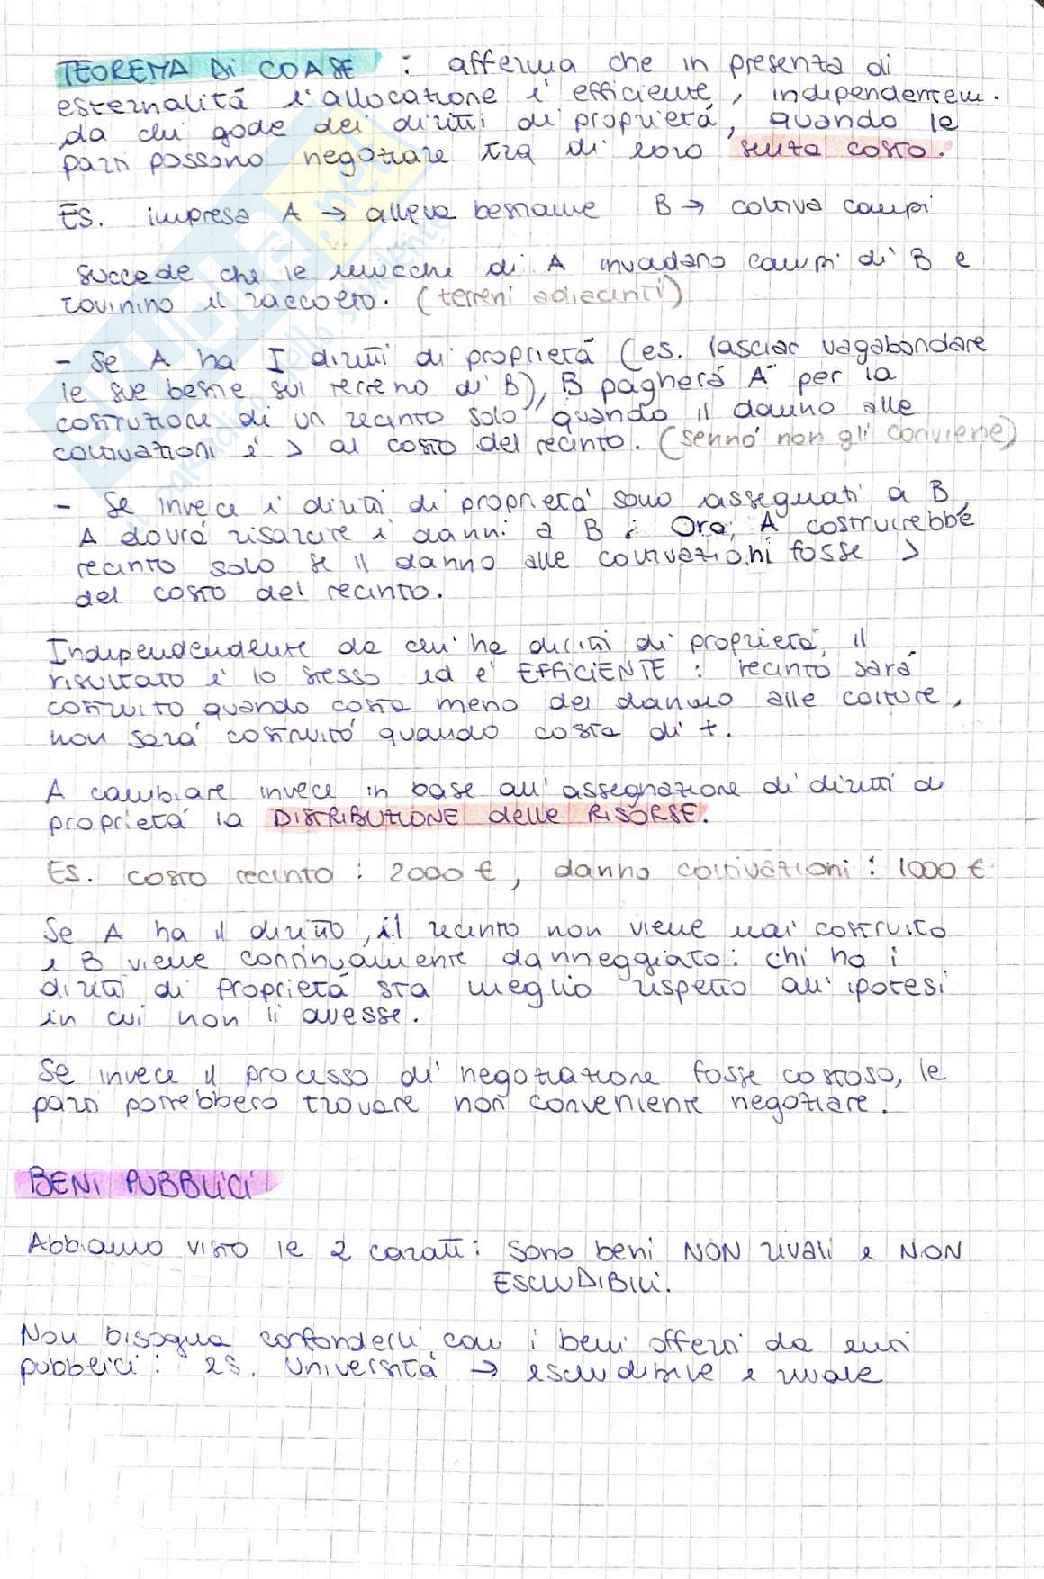 TEOREMA Di COASE : afferma che in presenza di
esternalità l'allocazione è efficiente, indipendentem.
da chi gode dei diritti di proprietà, quando le
parti possono negoziare tra di loro senza costo.
ES. impresa A → alleva bestiame B → coltiva campi
Succede che le mucche di A invadano campi di B e
rovinino il raccolto. (terreni adiacenti)
- Se A ha I diritti di proprietà (es. lasciar vagabondare
le sue bestie sul terreno di B), B pagherà A per la
costruzione di un recinto solo quando il danno alle
coltivazioni è > al costo del recinto. (sennò non gli conviene)
- Se invece i diritti di proprietà sono assegnati a B,
A dovrà risarcire i danni a B. Ora, A costruirebbe
recinto solo se il danno alle coltivazioni fosse >
del costo del recinto.
Indipendendente da chi ha diritti di proprietà, il
risultato è lo stesso ed è EFFICIENTE : recinto sarà
costruito quando costa meno del danno alle colture,
non sarà costruito quando costa di +.
A cambiare invece in base all'assegnazione di diritti di
proprietà la DISTRIBUZIONE delle RISORSE.
Es. costo recinto : 2000 €, danno coltivazioni : 1000 €
Se A ha il diritto, il recinto non viene mai costruito
e B viene continuamente danneggiato : chi ha i
diritti di proprietà sta meglio rispetto all'ipotesi
in cui non li avesse.
Se invece il processo di negoziazione fosse costoso, le
parti potrebbero trovare non conveniente negoziare.
BENI PUBBLICI
Abbiamo visto le 2 caratt : sono beni NON rivali e NON
ESCLUDIBILI.
Non bisogna confonderli con i beni offerti da enti
pubblici : es. Università → escludibile e rivale